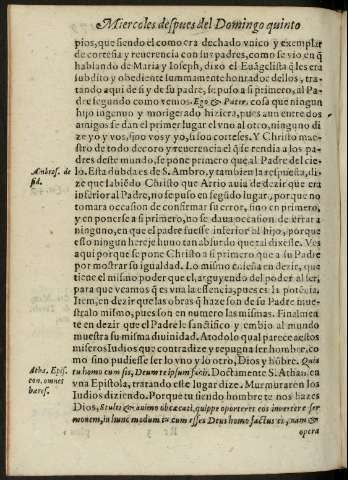 Miercoles despues del Domingo quinto
pios, que siendo el como era dechado vnico y exemplar
de cortesia y reuerencia con sus padres, como se vio en q̃
hablando de Maria y Ioseph, dixo el Euãgelista q̃ les era
subdito y obediente summamente honrador dellos, tra-
tando aqui de si y de su padre, se puso a si primero, al Pa
dre segundo como vemos. Ego & Pater. cosa que ningun
hijo ingenuo y morigerado hiziera, pues aun entre dos
amigos se dan el primer lugar el vno al otro, ninguno di
ze yo y vos, sino vos y yo, si son corteses. Y Christo maes-
tro de todo decoro y reuerencia el q̃ se rendia a los pa-
dres deste mundo, se pone primero que al Padre del cie-
Ambros. de
fid.
lo. Esta duda es de S. Ambro, y tambien la respuesta, di-
ze que sabiẽdo Christo que Arrio auia de dezir que era
inferior al Padre, no se puso en segũdo lugar, porque no
tomara occasion de confirmar su error, sino en primero,
y en ponerse a si primero, no se daua occasion de errar a
ninguno, en que el padre fuesse inferior al hijo, porque
esso ningun hereje huuo tan absurdo que tal dixesse. Ves
aqui porque se pone Christo a si primero que a su Padre
por mostrar su igualdad. Lo mismo enseña en dezir, que
tiene el mismo poder que el, arguyendo del poder al ser,
para que veamos q̃ es vna la essencia, pues es la potẽcia.
Item, en dezir que las obras q̃ haze son de su Padre mue-
stra lo mismo, pues son en numero las mismas. Finalmen
te en dezir que el Padre le sanctifico y embio al mundo
muestra su misma diuinidad. A todo lo qual parece a estos
miseros Iudios que contradize y repugna ser hombre, co
mo sino pudiesse ser lo vno y lo otro, Dios y hõbre. Quia
Atha. Epis.
con. omnes
hares.
tu homo cum sis, Deum te ipsum facis. Doctamente S. Athan. en
vna Epistola, tratando este lugar dize. Murmuraron los
Iudios diziendo. Porque tu siendo hombre te nos hazes
Dios, Stulti & animo obcæcati, quippe oporteret eos inuertere ser
monem, in hunc modum: tu cum esses Deus homo factus es, nam &
opera